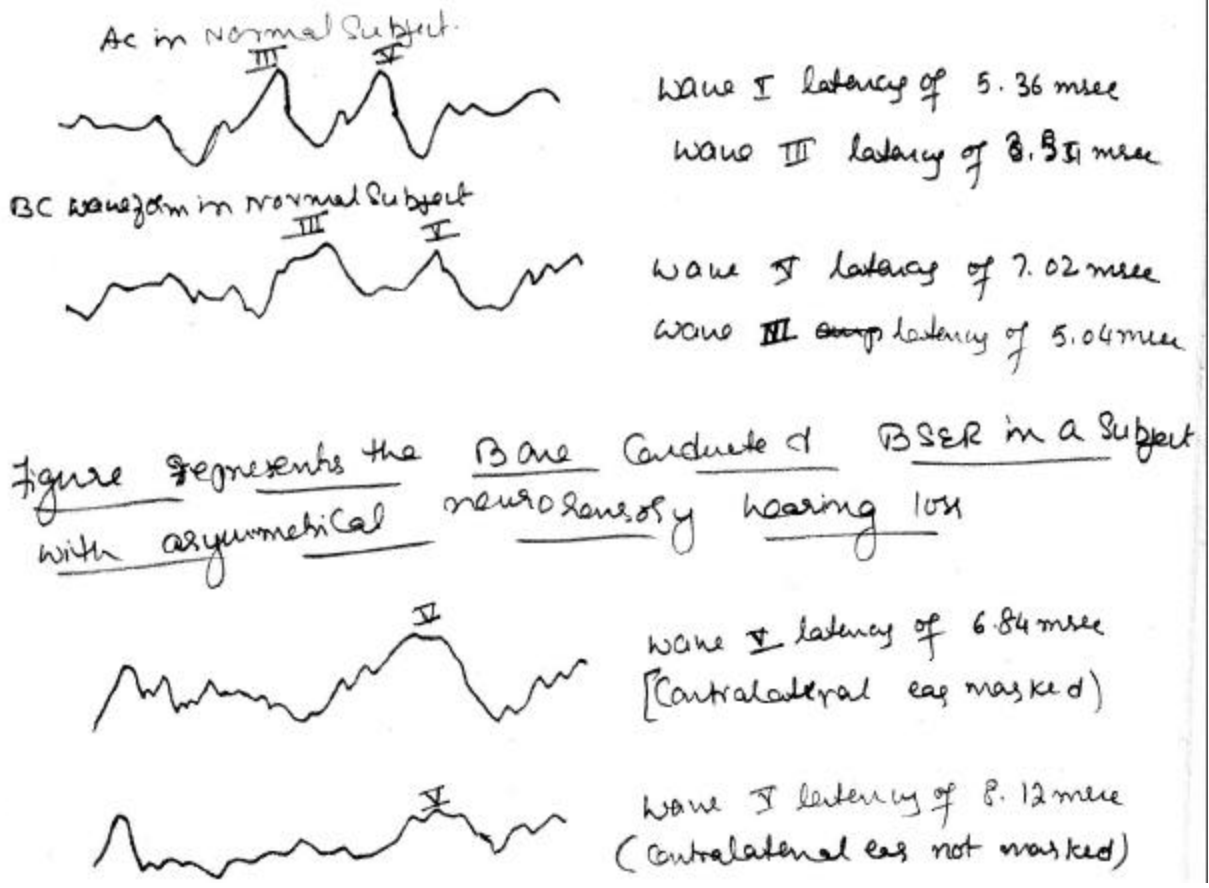 Ac in Normal Subject.
III V
wave I latency of 5.36 msec
wave III latency of msec
BC waveform in Normal Subject
III V
wave V latency of 7.02 msec
wave III latency of 5.04 msec
Figure represents the Bone Conducted BSER in a Subject
with asymmetrical neurosensory hearing loss
V
wave V latency of 6.84 msec
[Contralateral ear masked)
V
wave V latency of 8.12 msec
(Contralateral ear not masked)